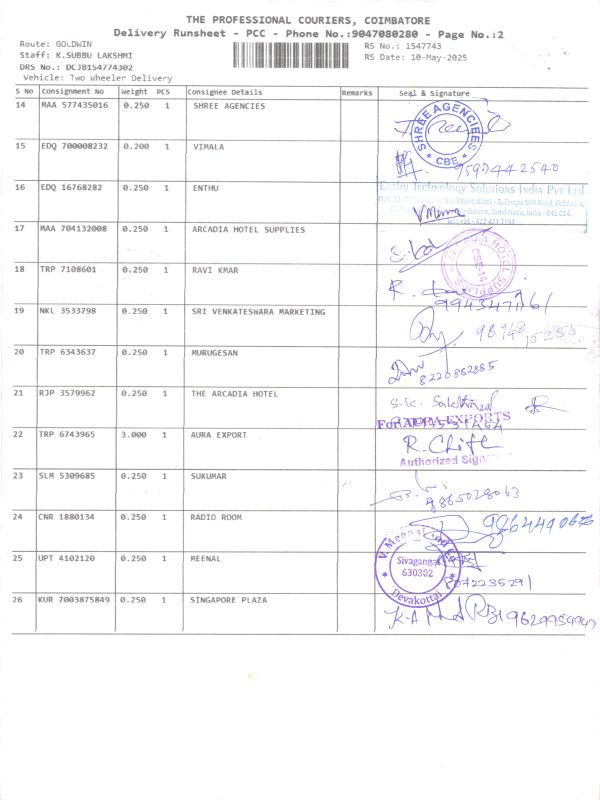 THE PROFESSIONAL COURIERS, COIMBATORE
Delivery Runsheet - PCC - Phone No.:9047080280 - Page No.:2
Route: GOLDWIN
Staff: K.SUBBU LAKSHMI
DRS No.: DCJB154774302
Vehicle: Two Wheeler Delivery
RS No.: 1547743
RS Date: 10-May-2025
S No Consignment No Weight PCS Consignee Details Remarks Seal & Signature
14 MAA 577435016 0.250 1 SHREE AGENCIES
SHREE AGENCIEES
* CBE *
15 EDQ 700008232 0.200 1 VIMALA
9597442540
16 EDQ 16768282 0.250 1 ENTHU
Entho Technology Solutions India Pvt Ltd
17 MAA 704132008 0.250 1 ARCADIA HOTEL SUPPLIES
18 TRP 7108601 0.250 1 RAVI KMAR
19 NKL 3533798 0.250 1 SRI VENKATESWARA MARKETING
20 TRP 6343637 0.250 1 MURUGESAN
8220862885
21 RJP 3579962 0.250 1 THE ARCADIA HOTEL
22 TRP 6743965 3.000 1 AURA EXPORT
EXPORTS
Authorized
23 SLM 5309685 0.250 1 SUKUMAR
9865028063
24 CNR 1880134 0.250 1 RADIO ROOM
25 UPT 4102120 0.250 1 MEENAL
Sivagangai
630302
Devakottai
26 KUR 7003875849 0.250 1 SINGAPORE PLAZA